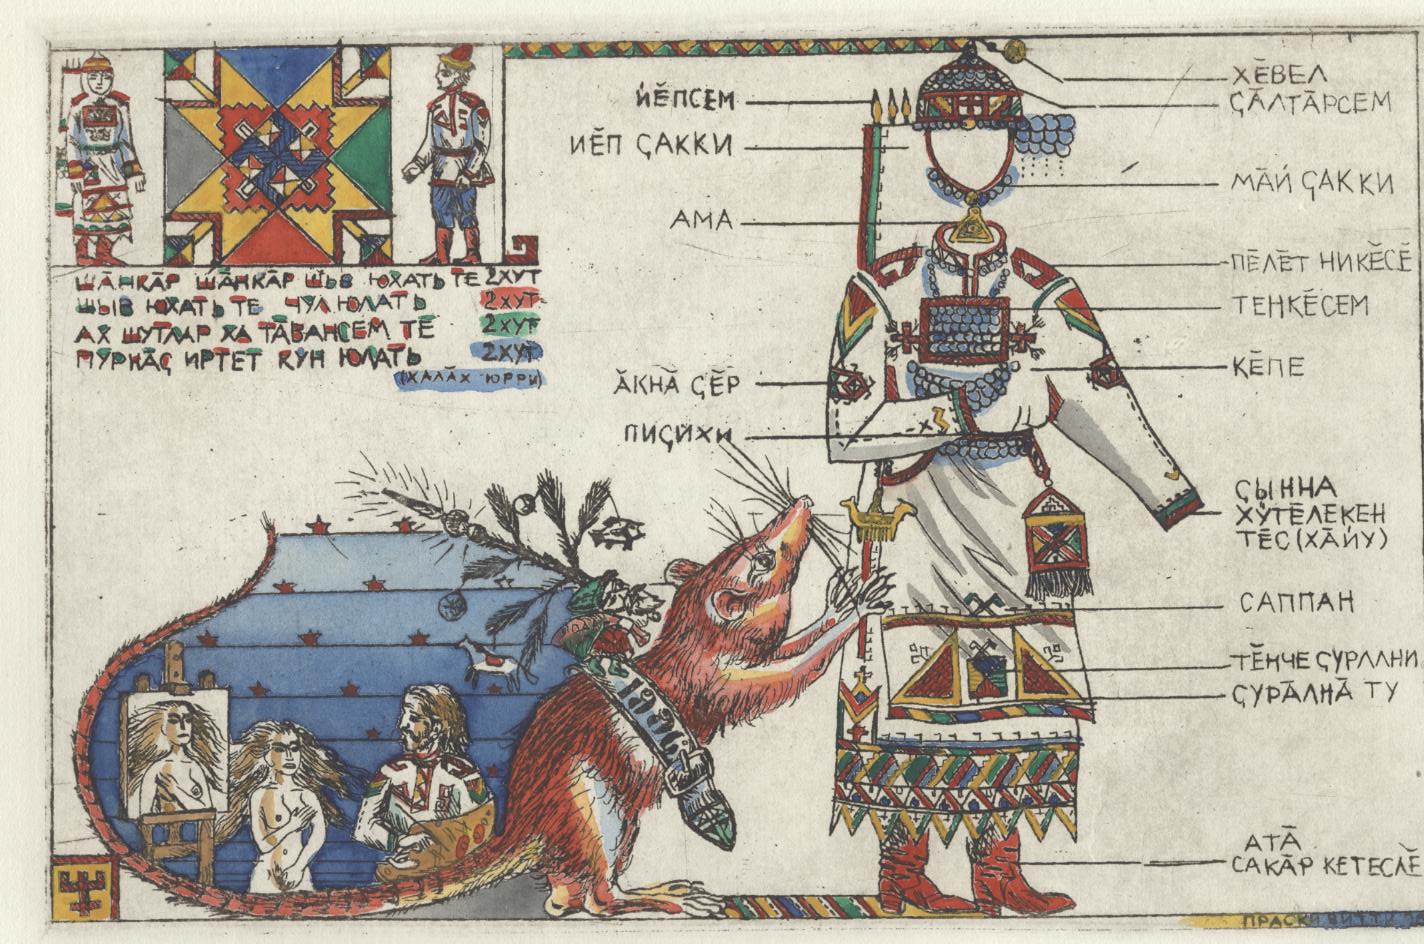 ШӐНКӐР ШӐНКӐР ШЫВ ЮХАТЬ ТЕ 2ХУТ
ШЫВ ЮХАТЬ ТЕ ЧУЛ ЮЛАТЬ 2ХУТ
АХ ШУТЛАР ХА ТӐВАНСЕМ ТЕ 2ХУТ
ПУРНӐҪ ИРТЕТ КУН ЮЛАТЬ 2ХУТ
(ХАЛӐХ ЮРРИ)
ЙӖПСЕМ
ЙӖП ҪАККИ
АМА
ӐКНӐ ҪӖР
ПИҪИХИ
ХӖВЕЛ
ҪӐЛТӐРСЕМ
МӐЙ ҪАККИ
ПӖЛӖТ НИКӖСӖ
ТЕНКӖСЕМ
КӖПЕ
ҪЫННА
ХӲТӖЛЕКЕН
ТӖС (ХӐЙУ)
САППАН
ТӖНЧЕ ҪУРАЛНИ
ҪУРӐЛНӐ ТУ
АТӐ
САКӐР КЕТЕСЛӖ
1996
ПРАСКИ ВИТТИ